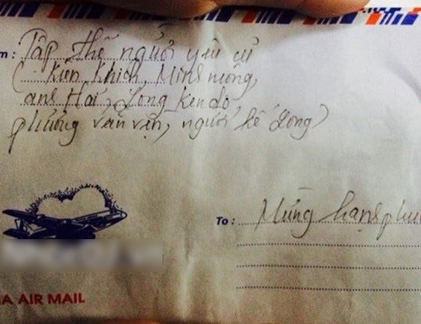 m: Tập thể người yêu cũ
(Kiên Khích, Minh nương,
anh Hải, Long Kendo,
phương vằn vện, người kế đong)
To: Mừng hạnh phú
A AIR MAIL